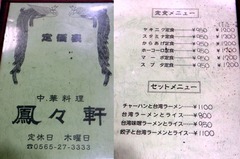 定価表
中華料理
鳳々軒
定休日 木曜日
☎0565-27-3333
定食メニュー
定食 ¥950
からあげ定食
ホーコーロー定食
マーボ定食 ¥950
スブタ定食 ¥950
セットメニュー
チャーハンと台湾ラーメン ¥1100
台湾ラーメンとライス ¥900
台湾味噌ラーメンとライス ¥950
餃子と台湾ラーメンとライス ¥1100